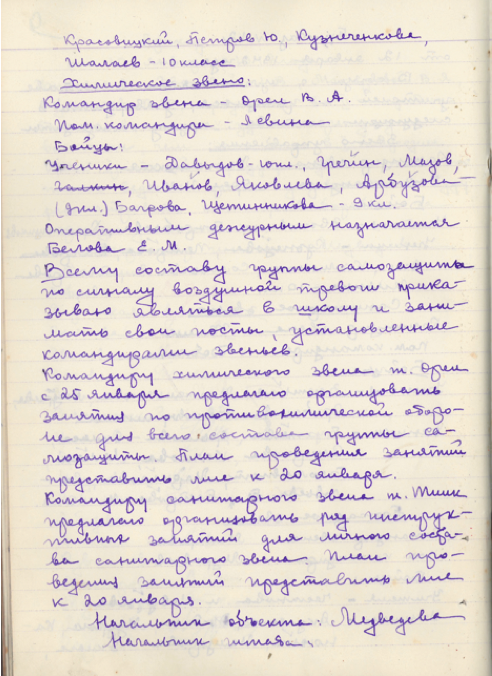 Красовицкий, Петров Ю., Кузнеченкова,
Шалаев - 10 класс
Химическое звено:
Командир звена - Орел В. А.
Пом. командира - Левина
Бойцы:
Ученики - Давыдов - 10 кл., Гречин, Мазов,
Галкин, Иванов, Яковлева, Арбузова -
(9 кл.) Багрова, Щетинникова - 9 кл.
Оперативным дежурным назначается
Белова Е. М.
Всему составу группы самозащиты
по сигналу воздушной тревоги прика-
зываю являться в школу и зани-
мать свои посты, установленные
командирами звеньев.
Командиру химического звена т. Орел
с 25 января предлагаю организовать
занятия по противохимической оборо-
не для всего состава группы са-
мозащиты. План проведения занятий
представить мне к 20 января.
Командиру санитарного звена т.
предлагаю организовать ряд инструк-
тивных занятий для личного соста-
ва санитарного звена. План про-
ведения занятий представить мне
к 20 января.
Начальник объекта: Медведева
Начальник штаба: